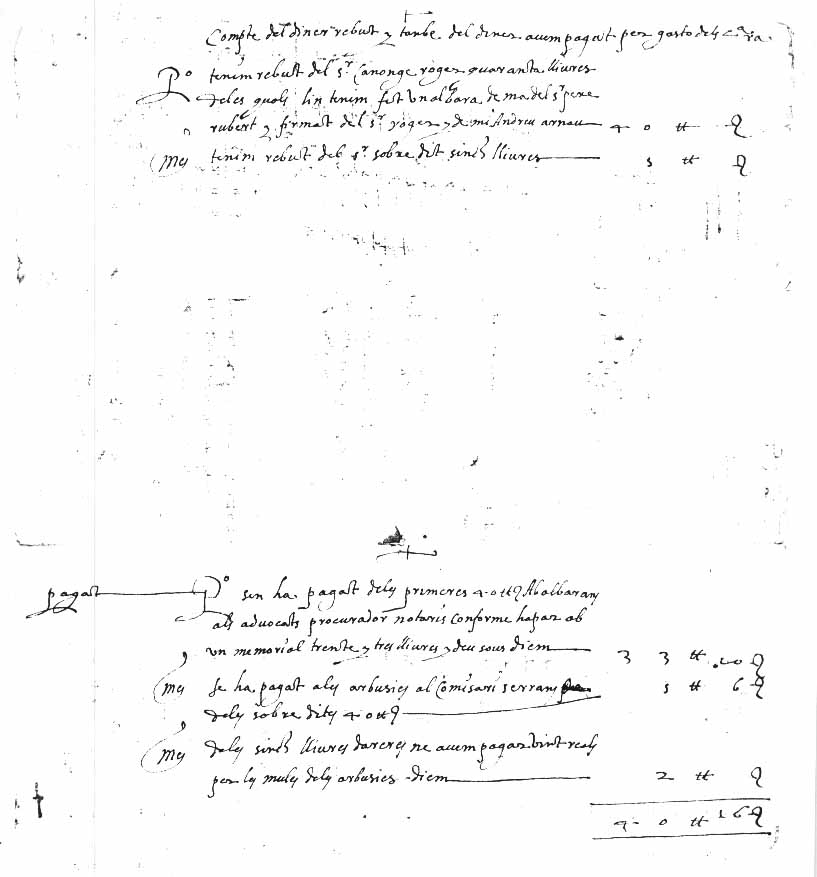 Compte del diner rebut y tanbe del diner avem pagat per gasto dels
Po tenim rebut del Sr Canonge roger quaranta lliures
deles quals lin tenim fet un albara de ma del Sr pere
rubert y firmat del Sr roger y de mi Andreu arnau 40 ₶ 𝔮
Mes tenim rebut del Sr sobre dit sinch lliures 5 ₶ 𝔮
pagat Po sen ha pagat dels primeres 40 ₶ 𝔮 Ab albarans
als advocats procurador notaris conforme hapar ab
un memorial trente y tres lliures y deu sous diem 33 ₶ 10 𝔮
Mes se ha pagat als arbusies al Comisari serrans 5 ₶ 6 𝔮
dels sobre dites 40 ₶ 𝔮
Mes dels sinch lliures dareres ne avem pagar vint reals
per les mules dels arbusies diem 2 ₶ 𝔮
40 ₶ 16 𝔮